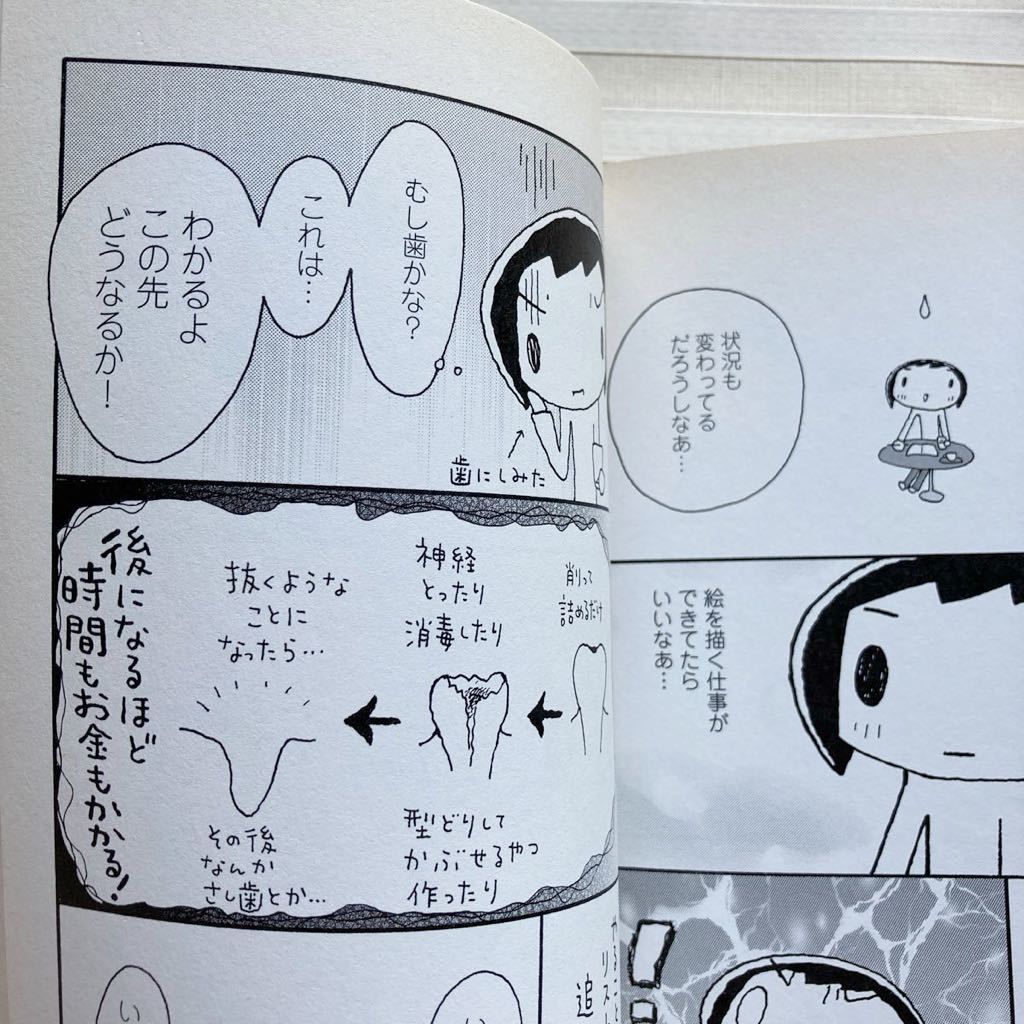 状況も
変わってる
だろうしなぁ…
絵を描く仕事が
できてたら
いいなぁ…
むし歯かな？
これは…
わかるよ
この先
どうなるか！
歯にしみた
削って
詰めるだけ
神経
とったり
消毒したり
型どりして
かぶせるやつ
作ったり
抜くような
ことに
なったら…
その後
なんか
さし歯とか…
後になるほど
時間もお金もかかる！
追
い